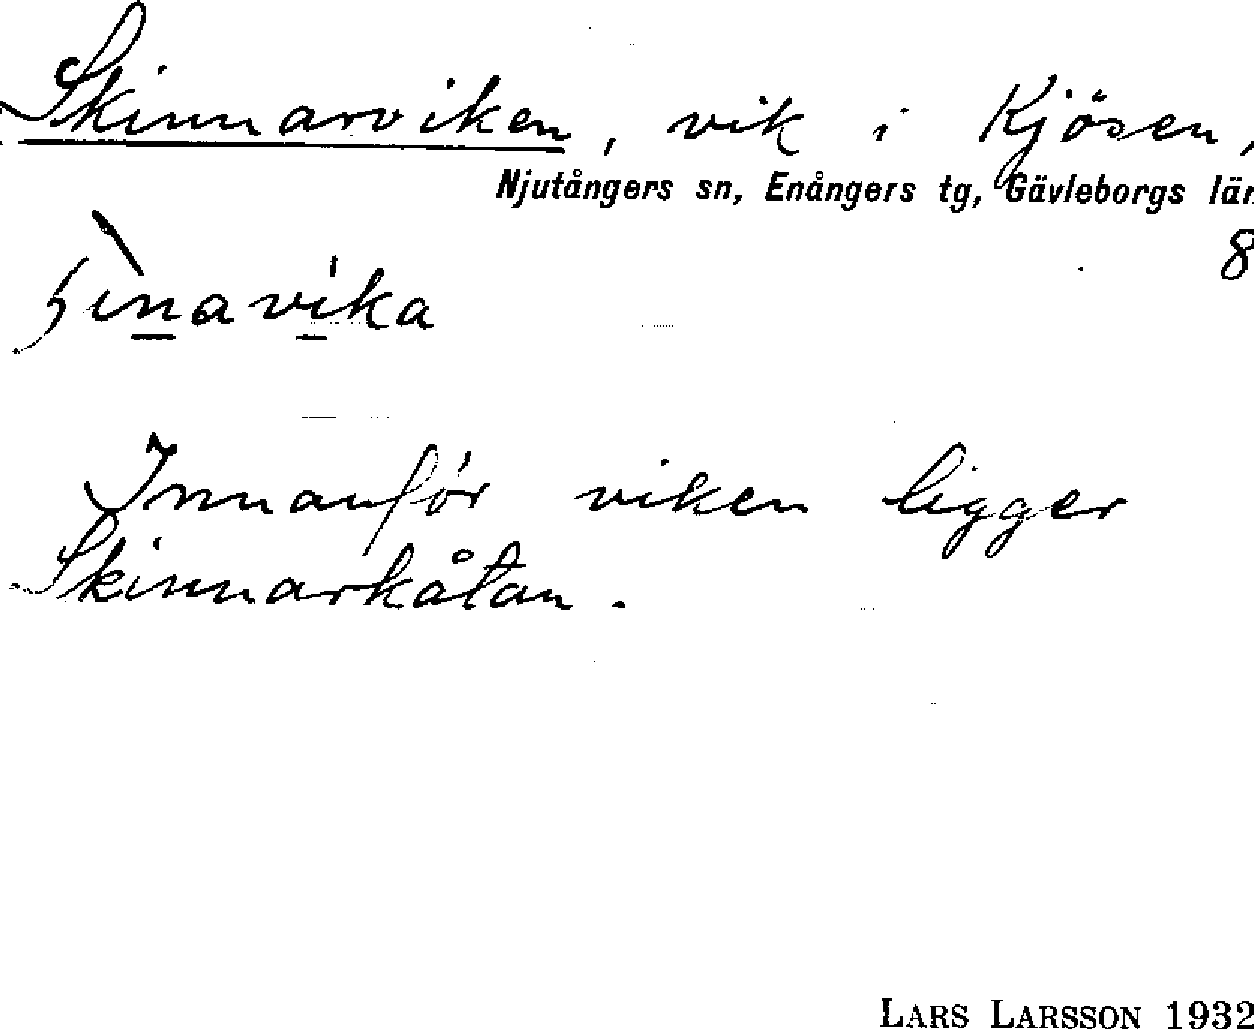 Skinnarviken, vik i Kjösen,
Njutångers sn, Enångers tg, Gävleborgs län
8
Innanför viken ligger
Skinnarkåtan.
LARS LARSSON 1932